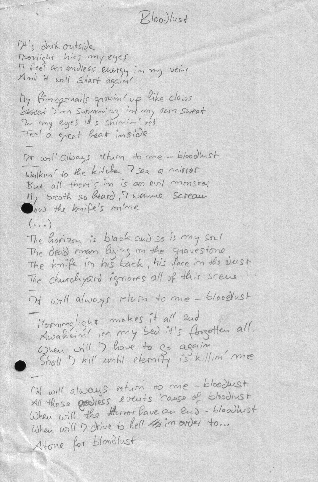 Bloodlust
It's dark outside
Moonlight hits my eyes
I feel an endless energy in my veins
And it will start again
My fingernails growin' up like claws
I'm swimming in my own sweat
In my eyes it's shinin' red
Feel a great heat inside
—
It will always return to me - bloodlust
—
Walkin' to the kitchen I see a mirror
But all there's in is an evil monster
My breath so heard, I wanna scream
Now the knife's mine
(...)
The horizon is black and so is my soul
The dead man lying in the gravestone
The knife in his back, his face in the dust
The churchyard ignores all of this scene
It will always return to me - bloodlust
—
Morninglight makes it all end
Awakening in my bed it's forgotten all
When will I have to go again
Shall I kill until eternity is killin' me
—
It will always return to me - bloodlust
All these godless events 'cause of bloodlust
When will the horror have an end - bloodlust
When will I drive to hell in order to...
Atone for bloodlust